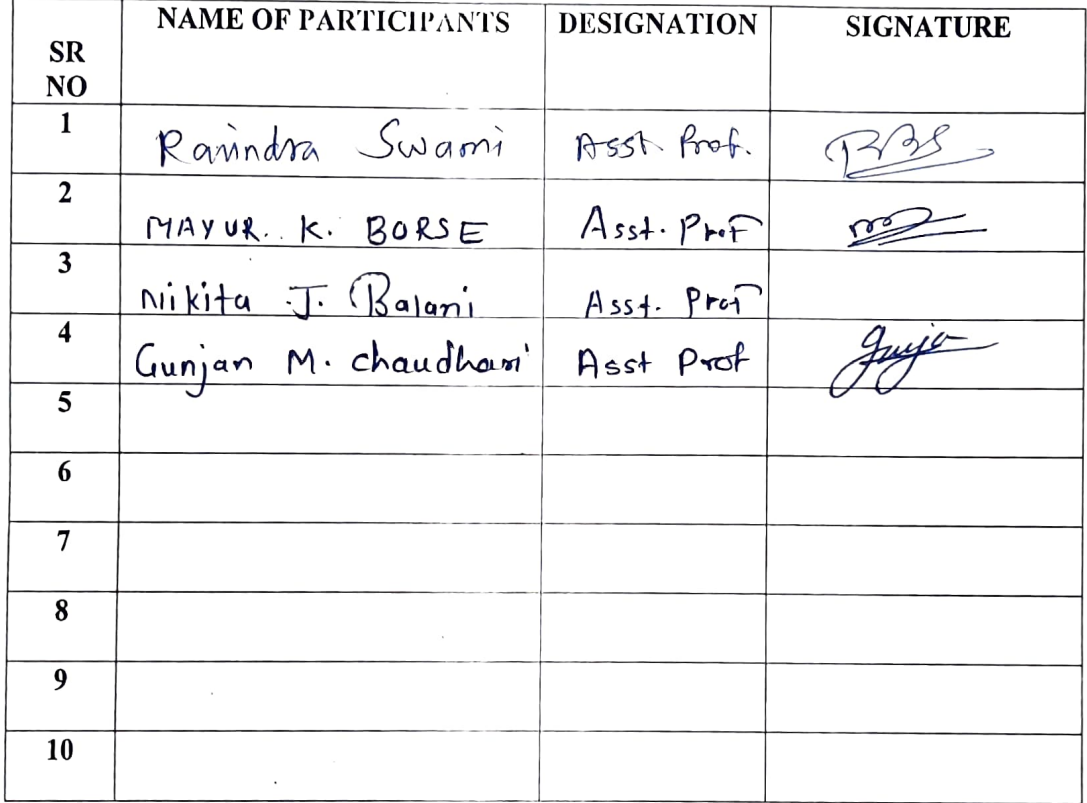 NAME OF PARTICIPANTS DESIGNATION SIGNATURE
SR
NO
1 Ravindra Swami Asst Prof.
2 MAYUR. K. BORSE Asst. Prof
3 Nikita J. Balani Asst. Prof
4 Gunjan M. Chaudhari Asst Prof
5
6
7
8
9
10